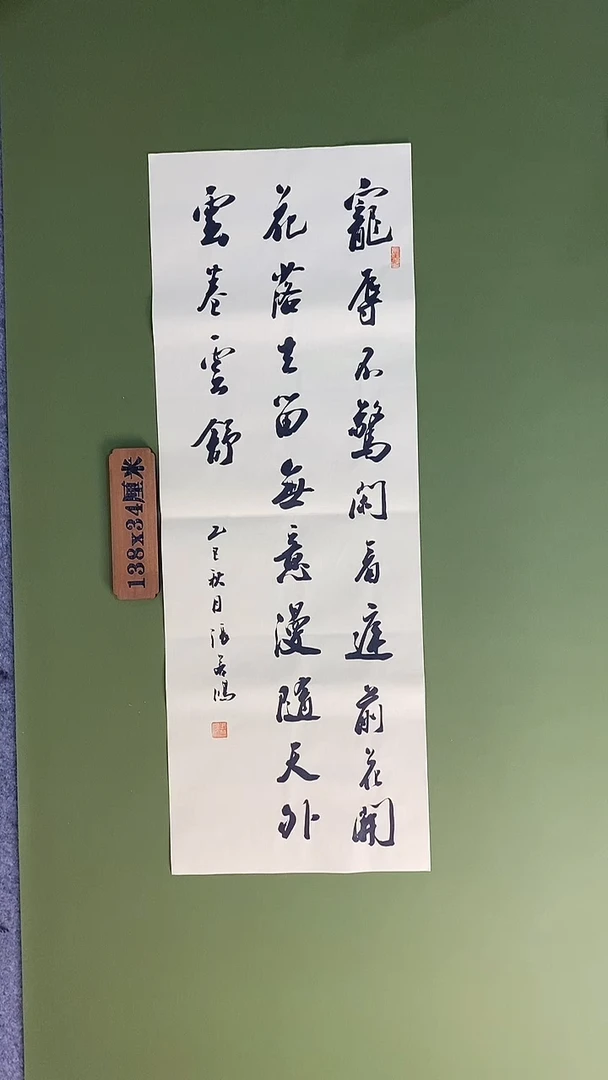 寵辱不驚閑看庭前花開
花落去留無意漫隨天外
雲卷雲舒
乙巳秋月
138x34厘米